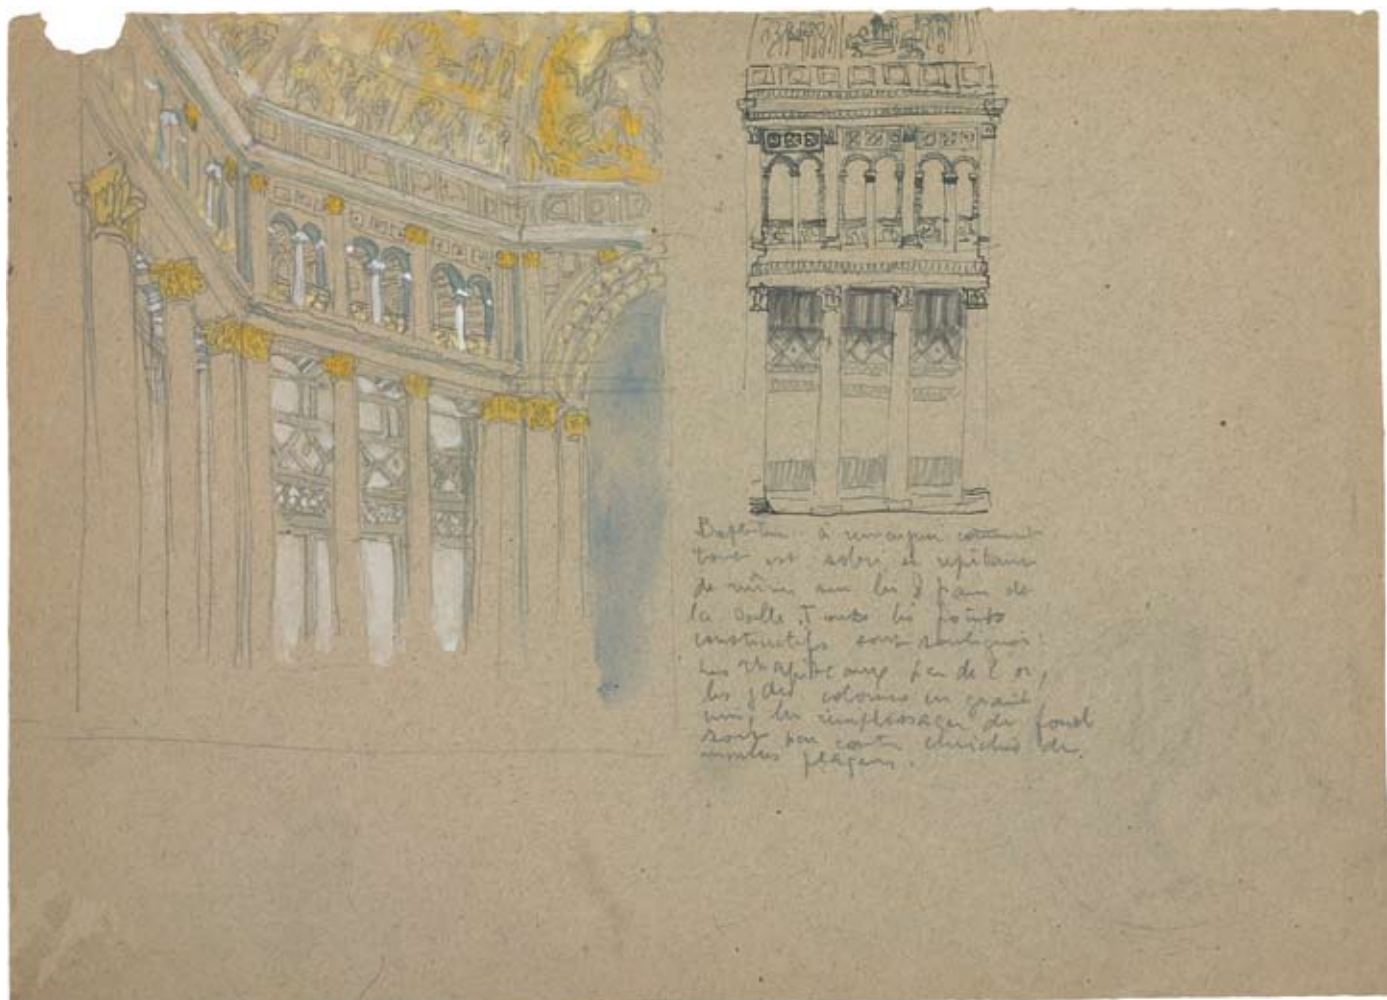 Baptistère à remarquer comment
tout est sobre et
de même sur les 8 pans de
la salle. Toutes les points
constructifs sont soulignés:
les chapiteaux par de l'or,
les gdes colonnes en granit
uni, les remplissages du fond
sont par contre enrichis de
marbres